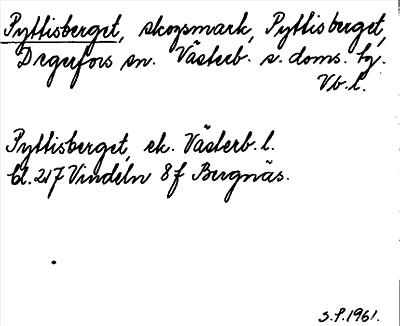 Pyttisberget, skogsmark, Pyttisberget,
Degerfors sn. Västerb. s. doms. tg.
Vb. l.
Pyttisberget, ek. Västerb. l.
bl. 217 Vindeln 8f Bergnäs.
S.P. 1961.